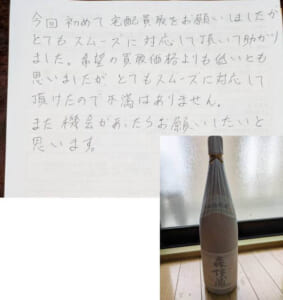 今回初めて宅配買取をお願いしましたが
とてもスムーズに対応して頂いて助かり
ました。希望の買取価格よりも低いとも
思いましたが、とてもスムーズに対応して
頂けたので不満はありません。
また機会があったらお願いしたいと
思います。
森伊蔵